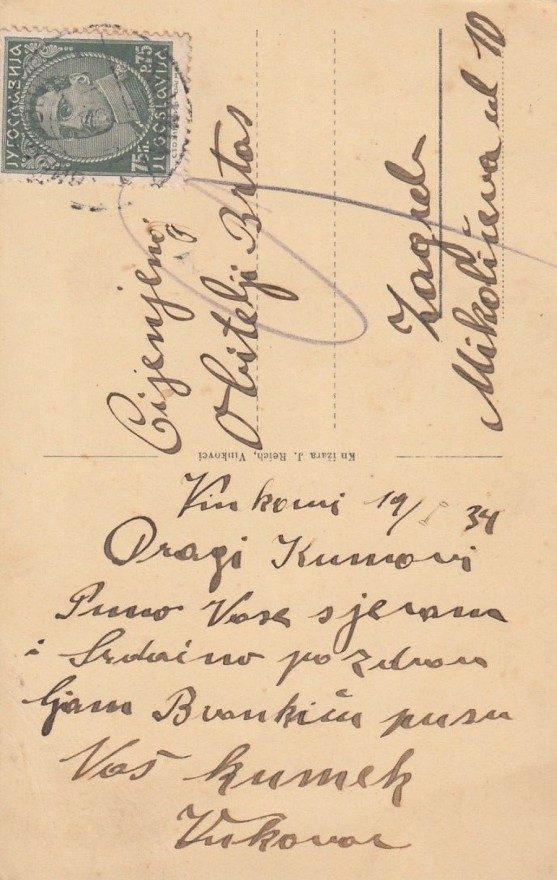 ЈУГОСЛАВИЈА
JUGOSLAVIJA
75
P. 75
Cijenjenoj
Obitelji Brtas
Zagreb
Mikolićeva ul 10
Knjižara J. Reich, Vinkovci
Vinkovci 19/ 34
Dragi Kumovi
Puno Vase sjecam
i Srdaćno pozdrav
ljam Brankiću pusu
Vaš kumek